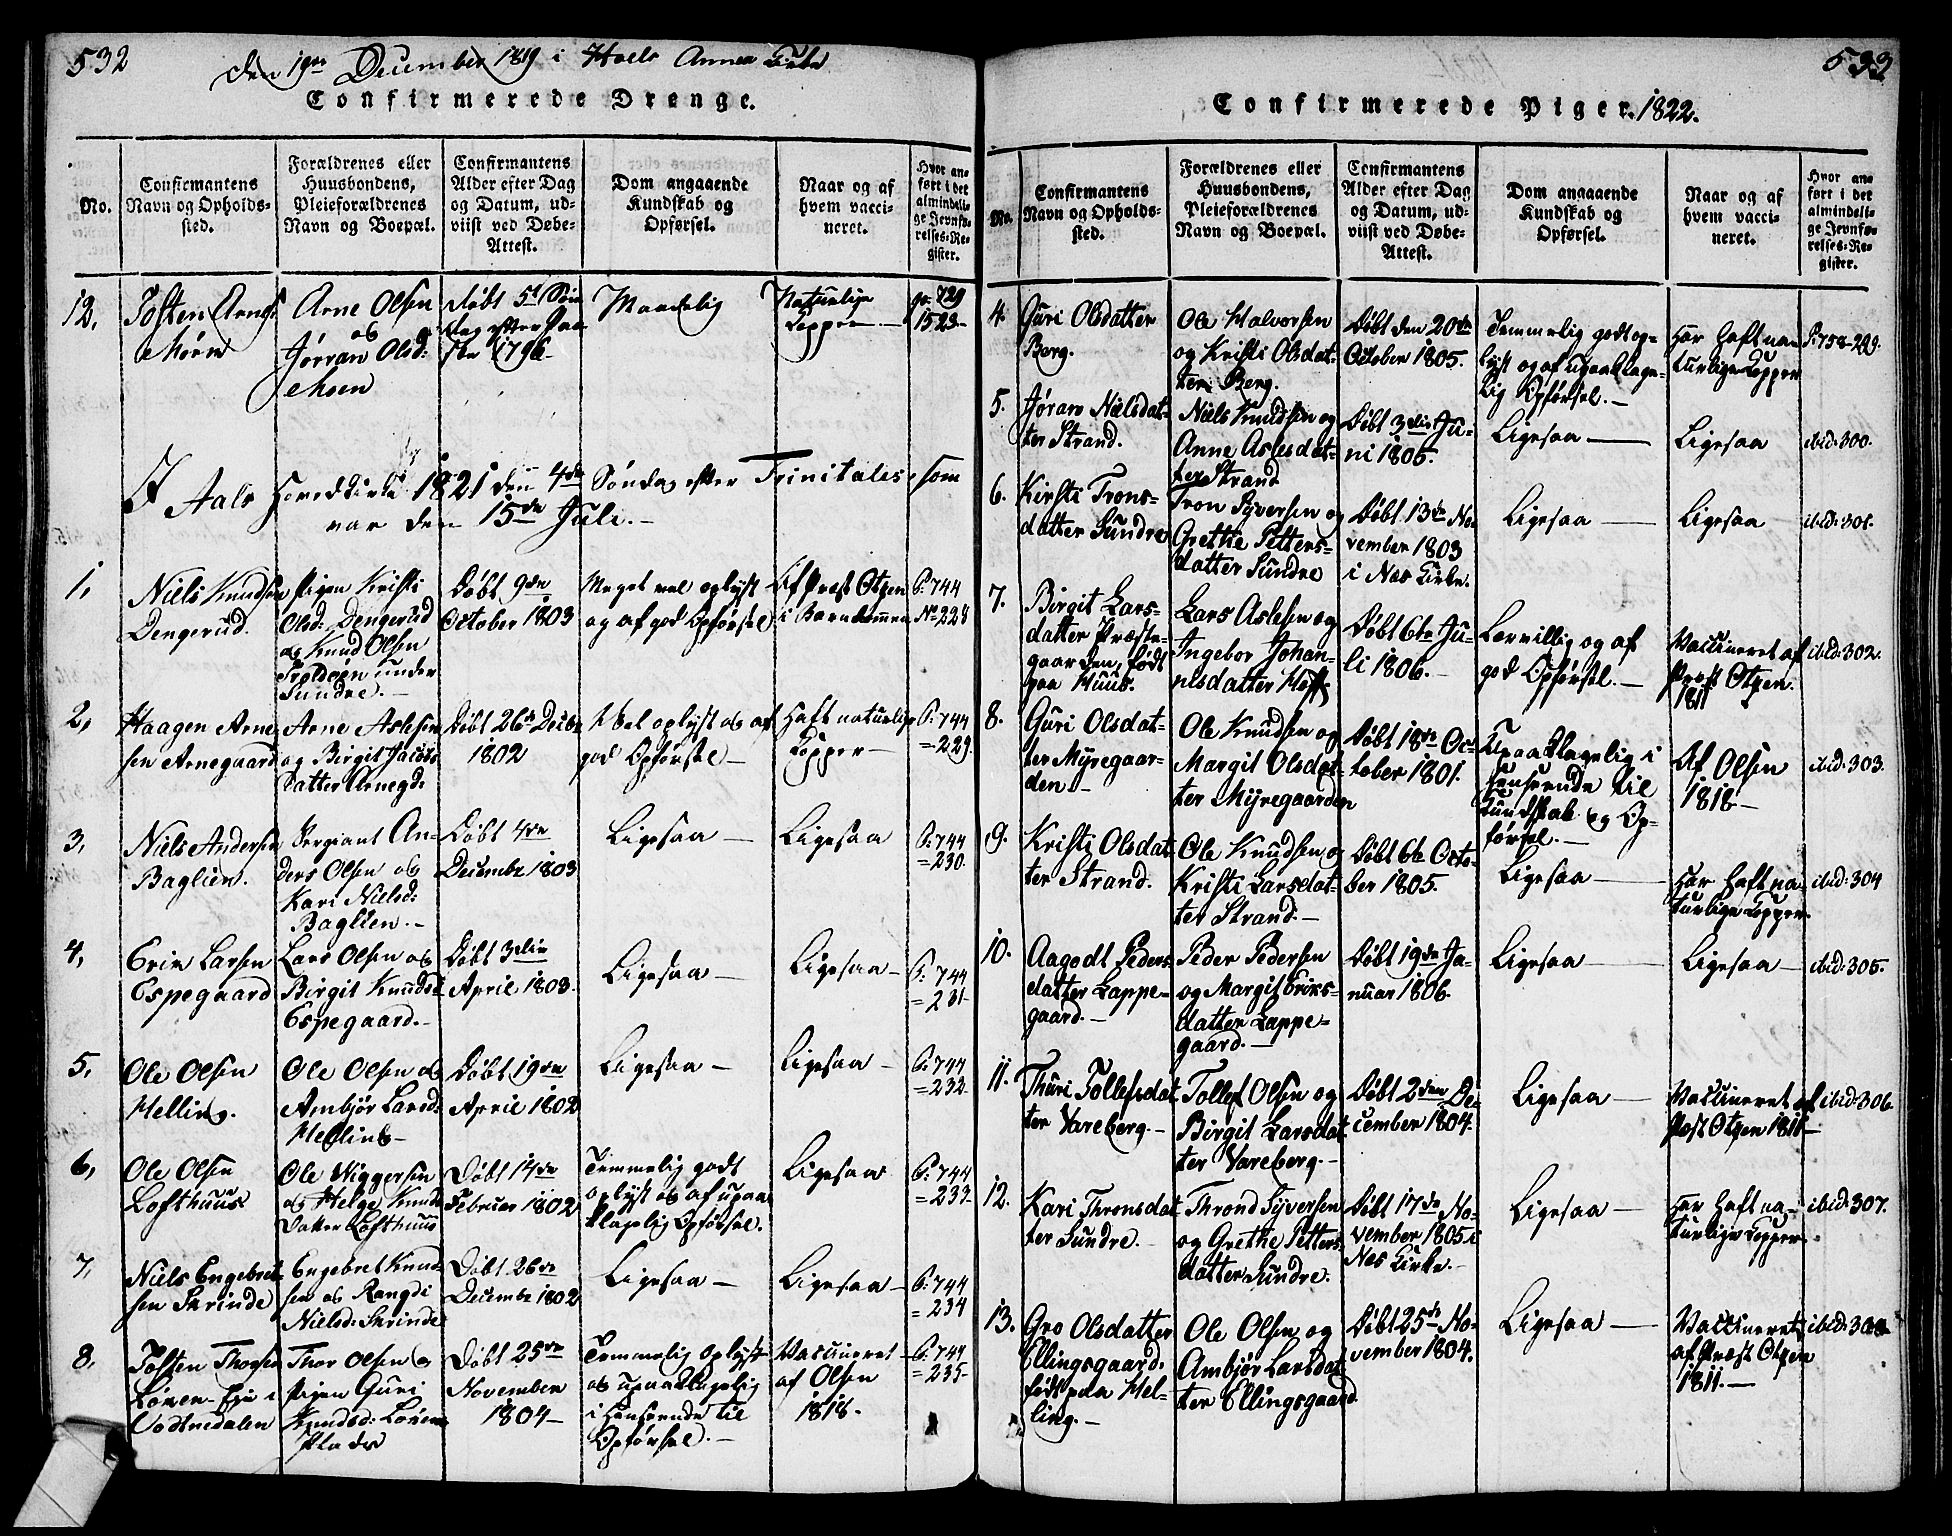 532
den 19de December 1819 i Hols Annex Kirke
Confirmerede Drenge.
No.
Confirmantens
Navn og Opholds-
sted.
Forældrenes eller
Huusbondens,
Pleieforældrenes
Navn og Boepæl.
Confirmantens
Alder efter Dag
og Datum, ud-
viist ved Døbe-
Attest.
Dom angaaende
Kundskab og
Opførsel.
Naar og af
hvem vacci-
neret.
Hvor an-
ført i det
almindeli-
ge Jevnfø-
relses-Re-
gister.
12,
Tosten Arnes:
Moen
Arne Olsen
og
Jørran Olsd:
Moen
Døbt 5t Søn
dag efter Paa
ske 1796
Maadelig
Naturlige
Kopper
pa. 729
1523
I Aals Hovedkirke 1821 den 4de Søndag efter Trinitatis, som
var den 15de Juli.
1,
Niels Knudsen
Dengerud.
Pigen Kristi
Olsd: Dengerud
og Knud Olsen
Trøldøen under
Sundre.
Døbt 9de
October 1803
Meget vel oplyst
og af god Opførsel
Af Præst Otzen
i Barndommen
P: 744
No 228
2,
Haagen Arne
sen Arnegaard
Arne Aslesen
og Birgit Jacobs
Datter Arnegd:
Døbt 26de Decbr
1802
Vel oplyst og af
god Opførsel
Haft naturlige
Kopper
P: 744
= 229.
3,
Niels Andersen
Baglien.
Sergeant An-
ders Olsen og
Kari Nielsd:
Baglien.
Døbt 4de
Decembr 1803
Ligesaa
Ligesaa
P: 744
= 230.
4,
Erik Larsen
Espegaard
Lars Olsen og
Birgit Knudsd
Espegaard.
Døbt 3die
April 1803.
Ligesaa
Ligesaa
P: 744
= 231
5,
Ole Olsen
Helling.
Ole Olsen og
Ambjør Larsd:
Helling
Døbt 19de
April 1802
Ligesaa
Ligesaa
P: 744
= 232.
6,
Ole Olsen
Lofthuus
Ole Wiggersen
og Helge Knuds
Datter Lofthuus
Døbt 14de
Februar 1802
Temmelig godt
oplyst og af upaa
klagelig Opførsel.
Ligesaa
P: 744
= 233.
7,
Niels Engebret-
sen Skrinde
Engebret Knud
sen og Rangdi
Nielsd: Skrinde
Døbt 26de
Decembr 1802
Ligesaa
Ligesaa
P: 744
= 234
8,
Tosten Thorsen
Lønen Eje i
Vodtnedalen
Thor Olsen og
Pigen Guri
Knudsd: Lønen
Plads
Døbt 25de
November
1804
Temmelig oplyst
og upaaklagelig
i Henseende til
Opførsel.
Vaccineret
af Olsen
1818.
P: 744
= 235.
533
Confirmerede Piger. 1822.
No.
Confirmantens
Navn og Opholds-
sted.
Forældrenes eller
Huusbondens,
Pleieforældrenes
Navn og Boepæl.
Confirmantens
Alder efter Dag
og Datum, ud-
viist ved Døbe-
Attest.
Dom angaaende
Kundskab og
Opførsel.
Naar og af
hvem vacci-
neret.
Hvor an-
ført i det
almindeli-
ge Jevnfø-
relses-Re-
gister.
4.
Guri Olsdatter
Berg.
Ole Halvorsen
og Kristi Olsdat-
ter Berg.
Døbt den 20de
October 1805.
Temmelig godt op-
lyst og af upaaklage-
lig Opførsel.
Har haft na-
turlige Kopper
P: 758-299.
5.
Jøran Nielsdat-
ter Strand.
Niels Knudsen og
Anne Aslesdat-
ter Strand
Døbt 3die Ju-
ni 1805.
Ligesaa
Ligesaa
ibid: 300.
6.
Kirsti Trons-
datter Sundre
Tron Syversen og
Grethe Petters-
datter Sundre
Døbt 13de No-
vember 1803
i Næs Kirke.
Ligesaa
Ligesaa
ibid: 301.
7.
Birgit Lars-
datter Præste-
gaarden, født
paa Huus.
Lars Aslesen og
Ingebor Johan-
nesdatter Hoff
Døbt 6te Ju-
li 1806.
Lærvillig og af
god Opførsel.
Vaccineret af
Præst Otzen.
1811
ibid: 302.
8.
Guri Olsdat-
ter Myregaar-
den
Ole Knudsen og
Margit Olsdat-
ter Myregaarden
Døbt 18de Oc-
tober 1801.
Upaaklagelig i
Henseende til
Kundskab og Op-
førsel.
Af Olsen
1818
ibid: 303.
9.
Kristi Olsdat-
ter Strand.
Ole Knudsen og
Kristi Larsdat-
ter Strand.
Døbt 6te Octo-
ber 1805.
Ligesaa
Har haft na-
turlige Kopper
ibid: 304
10.
Aagodt Peders-
datter Lappe-
gaard.
Peder Pedersen
og Margit Eriks-
datter Lappe-
gaard.
Døbt 19de Ja-
nuar 1806.
Ligesaa
Ligesaa
ibid: 305.
11.
Thuri Tollefsdat
ter Vareberg.
Tollef Olsen og
Birgit Larsdat
ter Vareberg.
Døbt 2den De-
cember 1804.
Ligesaa
Vaccineret af
Præst Otzen 1811
ibid: 306.
12.
Kari Thronsdat
ter Sundre.
Thrond Syversen
og Grethe Petters
datter Sundre.
Døbt 17de No-
vember 1805 i
Næs Kirke.
Ligesaa
Har haft na-
turlige Kopper
ibid: 307.
13.
Gro Olsdatter
Ellingsgaard.
født paa Hel-
ling.
Ole Olsen og
Ambjør Larsdat
ter Ellingsgaard
Døbt 25de No-
vember 1804.
Ligesaa
Vaccineret
af Præst Otzen
1811.
ibid: 308